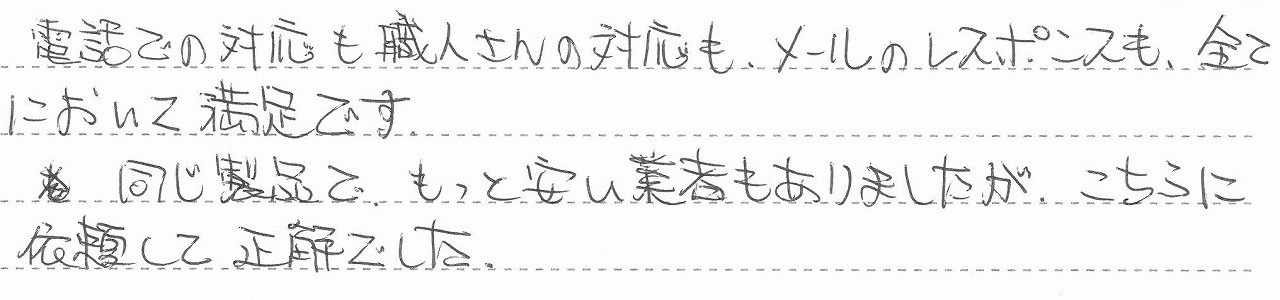 電話での対応も職人さんの対応も、メールのレスポンスも、全て
において満足です。
同じ製品で、もっと安い業者もありましたが、こちらに
依頼して正解でした。